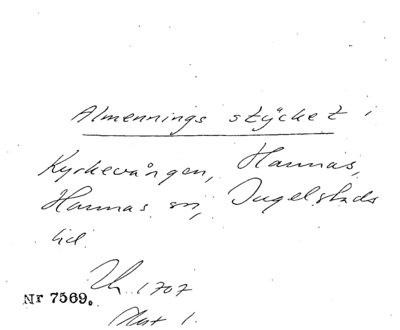 Almennings stÿcket i
Kyrkevången, Hannas,
Hannas sn, Ingelstads
hd.
1707
Nr 7569.